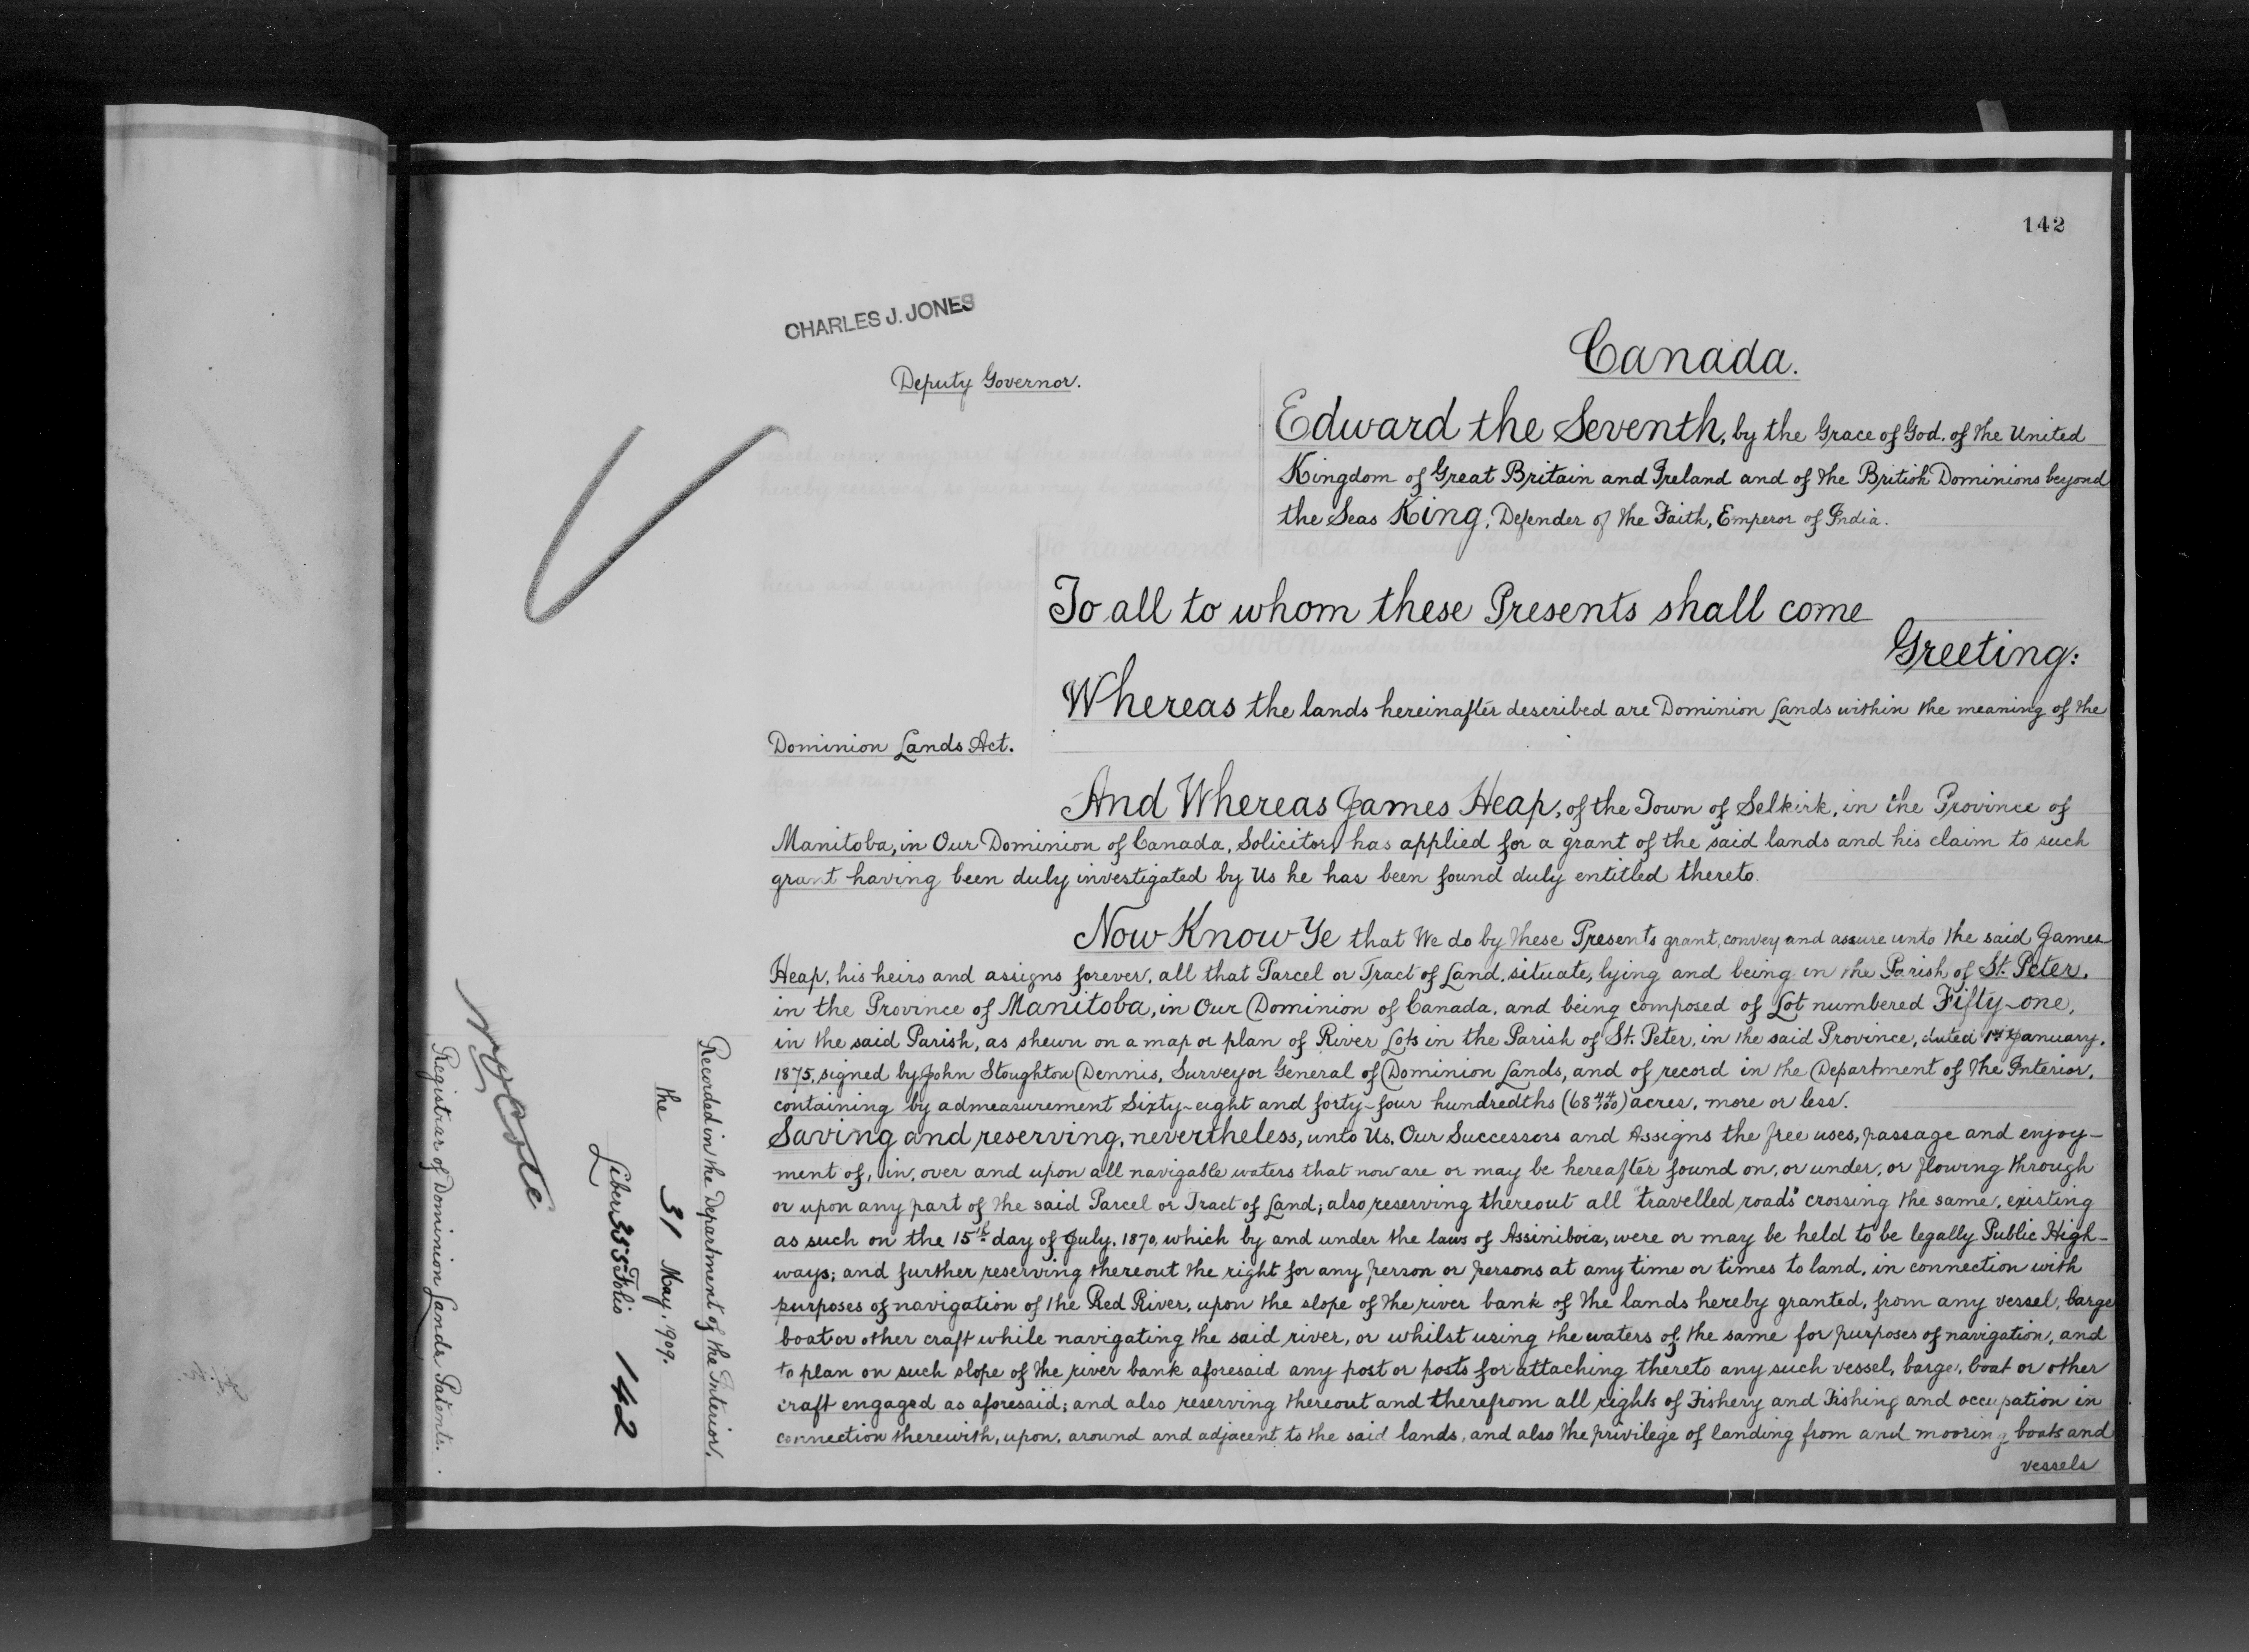 142
CHARLES J. JONES
Deputy Governor.
Canada.
Edward the Seventh, by the Grace of God, of the United
Kingdom of Great Britain and Ireland and of the British Dominions beyond
the Seas King, Defender of the Faith, Emperor of India.
To all to whom these Presents shall come
Greeting:
Whereas the lands hereinafter described are Dominion Lands within the meaning of the
Dominion Lands Act.
And Whereas James Heap, of the Town of Selkirk, in the Province of
Manitoba, in Our Dominion of Canada, Solicitor, has applied for a grant of the said lands and his claim to such
grant having been duly investigated by Us he has been found duly entitled thereto.
Now Know Ye that We do by these Presents grant, convey and assure unto the said James
Heap, his heirs and assigns forever, all that Parcel or Tract of Land, situate, lying and being in the Parish of St. Peter,
in the Province of Manitoba, in Our Dominion of Canada, and being composed of Lot numbered Fifty-one,
in the said Parish, as shewn on a map or plan of River Lots in the Parish of St. Peter, in the said Province, dated 1st January,
1875, signed by John Stoughton Dennis, Surveyor General of Dominion Lands, and of record in the Department of the Interior,
containing by admeasurement Sixty-eight and forty-four hundredths (68 44/100) acres, more or less.
Saving and reserving, nevertheless, unto Us, Our Successors and Assigns the free uses, passage and enjoy-
ment of, in, over and upon all navigable waters that now are or may be hereafter found on, or under, or flowing through
or upon any part of the said Parcel or Tract of Land; also reserving thereout all "travelled roads" crossing the same, existing
as such on the 15th day of July, 1870, which by and under the laws of Assiniboia, were or may be held to be legally Public High-
ways; and further reserving thereout the right for any person or persons at any time or times to land, in connection with
purposes of navigation of the Red River, upon the slope of the river bank of the lands hereby granted, from any vessel, barge
boat or other craft while navigating the said river, or whilst using the waters of the same for purposes of navigation, and
to plan on such slope of the river bank aforesaid any post or posts for attaching thereto any such vessel, barge, boat or other
craft engaged as aforesaid; and also reserving thereout and therefrom all rights of Fishery and Fishing and occupation in
connection therewith, upon, around and adjacent to the said lands, and also the privilege of landing from and mooring boats and
vessels
Recorded in the Department of the Interior,
the 31 May. 1909.
Liber 355 Folio 142
Registrar of Dominion Lands Patents.